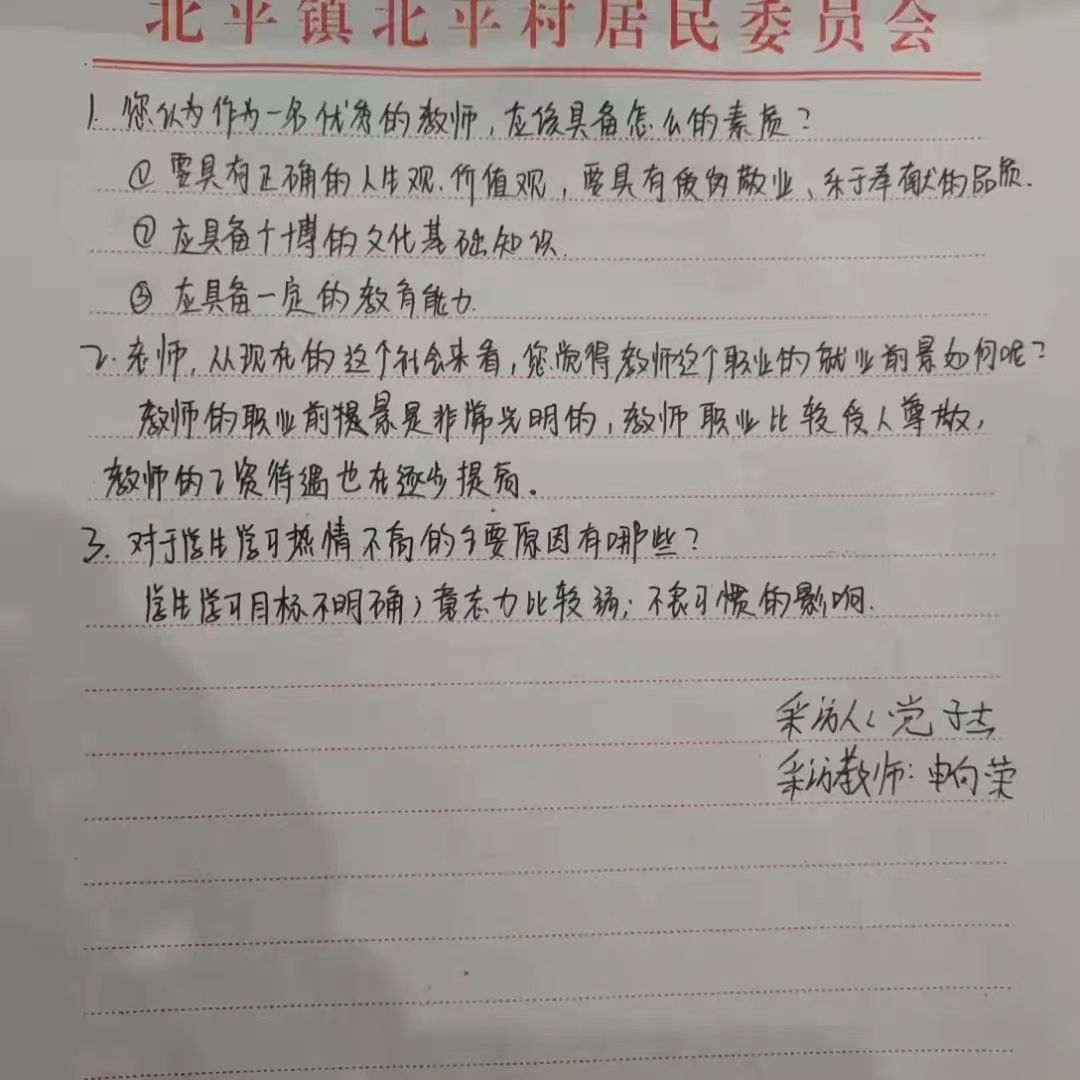 北平镇北平村居民委员会
1. 您认为作为一名优秀的教师，应该具备怎么的素质？
① 要具有正确的人生观.价值观，要具有爱岗敬业、乐于奉献的品质.
② 应具备广博的文化基础知识.
③ 应具备一定的教育能力.
2. 老师，从现在的这个社会来看，您觉得教师这个职业的就业前景如何呢？
教师的职业前景是非常光明的，教师职业比较受人尊敬，
教师的工资待遇也在逐步提高。
3. 对于学生学习热情不高的主要原因有哪些？
学生学习目标不明确；意志力比较弱；不良习惯的影响.
采访人：党子
采访教师：申向荣